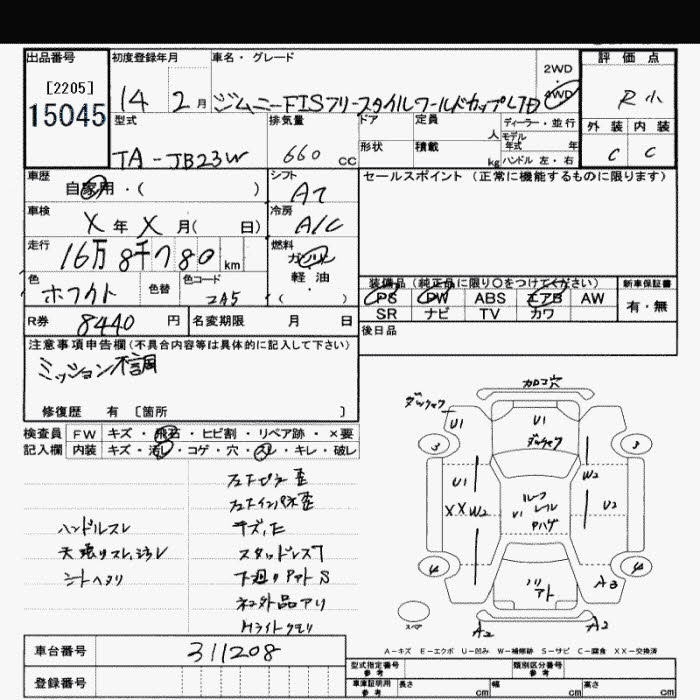 出品番号 初度登録年月 車名・グレード 評価点
[2205] 15045
14 2月 ジムニーFISフリースタイルワールドカップLTD 2WD 4WD R小
型式 排気量 ドア 定員 人 ディーラー・並行 外装 内装
モデル年式 年
TA-JB23W 660 CC 形状 積載 kg ハンドル 左・右 C C
車歴 自家用・( ) シフト AT セールスポイント (正常に機能するものに限ります)
車検 X年X月( 日) 冷房 A/C
走行 16万8千780km 燃料 ガソリン 軽油 ( )
色 ホワイト 色替 色コード 2A5
装備品 (純正品に限り○をつけてください) 新車保証書
PS PW ABS エアB AW 有・無
SR ナビ TV カワ
R券 8440円 名変期限 月 日 後日品
注意事項申告欄(不具合内容等は具体的に記入して下さい)
ミッション不調
修復歴 有 〔箇所 〕
検査員 FW キズ・飛石・ヒビ割・リペア跡・×要
記入欄 内装 キズ・汚レ・コゲ・穴・スレ・キレ・破レ
ハンドルスレ
シートヘタリ
キズ,セ
スタッドレス
下廻りサビ S
社外品アリ
Hライトクモリ
カロコ穴
ダッカック
U1 U1
ダッカック
3 3
U1 W2
XX W2 U1 ルーフ レール U2
4 4
A3
スペア A2 A2
A-キズ E-エクボ U-凹み W-補修跡 S-サビ C-腐食 XX-交換済
車台番号 311208
登録番号
型式指定番号 参考 類別区分番号 参考
車庫証明用 参考 長さ cm 幅 cm 高さ cm